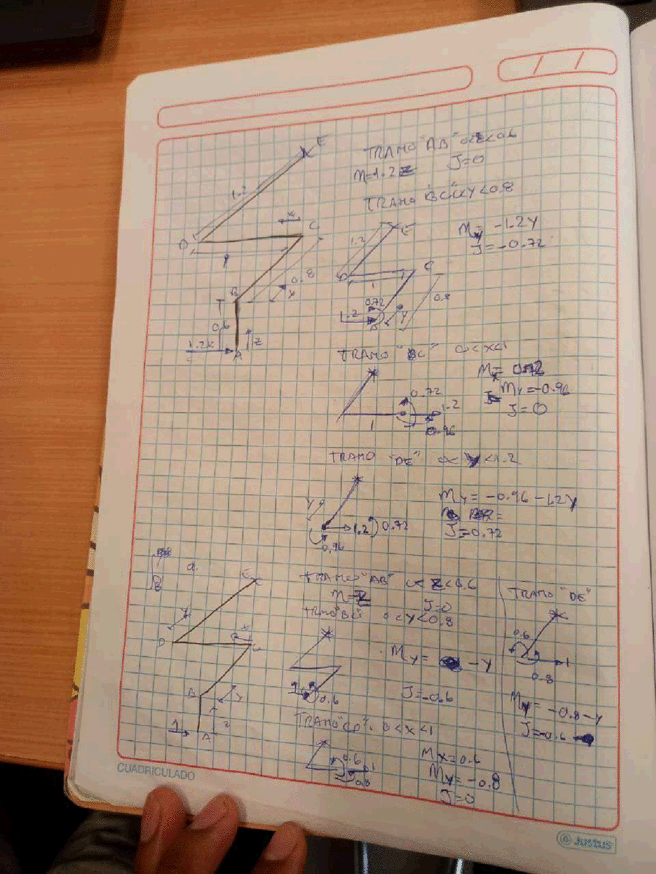 E
TRAMO "AB" 0<z<0.6
M=1.2z J=0
1.2
TRAMO "BC" 0<Y<0.8
x
D C
1
My= -1.2Y
J= -0.72
1.2
E
D C
1
0.8
0.72
0.8
B
x
0.6
1.2
B
Y
1.2K
z
A
0<x<1
Mx= 0.72
My= -0.96
J=0
0.72
1.2
1
0.96
TRAMO "DE" 0<Y<1.2
My= -0.96-1.2Y
J=0.72
Y
1.2
0.72
0.96
TRAMO "AB" 0<z<0.6
M=z J=0
TRAMO "BC" 0<Y<0.8
My= -Y
J= -0.6
0.6
E
Y
x
D C
B
Y
z
1
A
TRAMO "CD" 0<x<1
Mx=0.6
My= -0.8
J=0
0.6
1
TRAMO "DE"
0.6
1
0.8
My= -0.8-Y
J= -0.6
CUADRICULADO
Justus